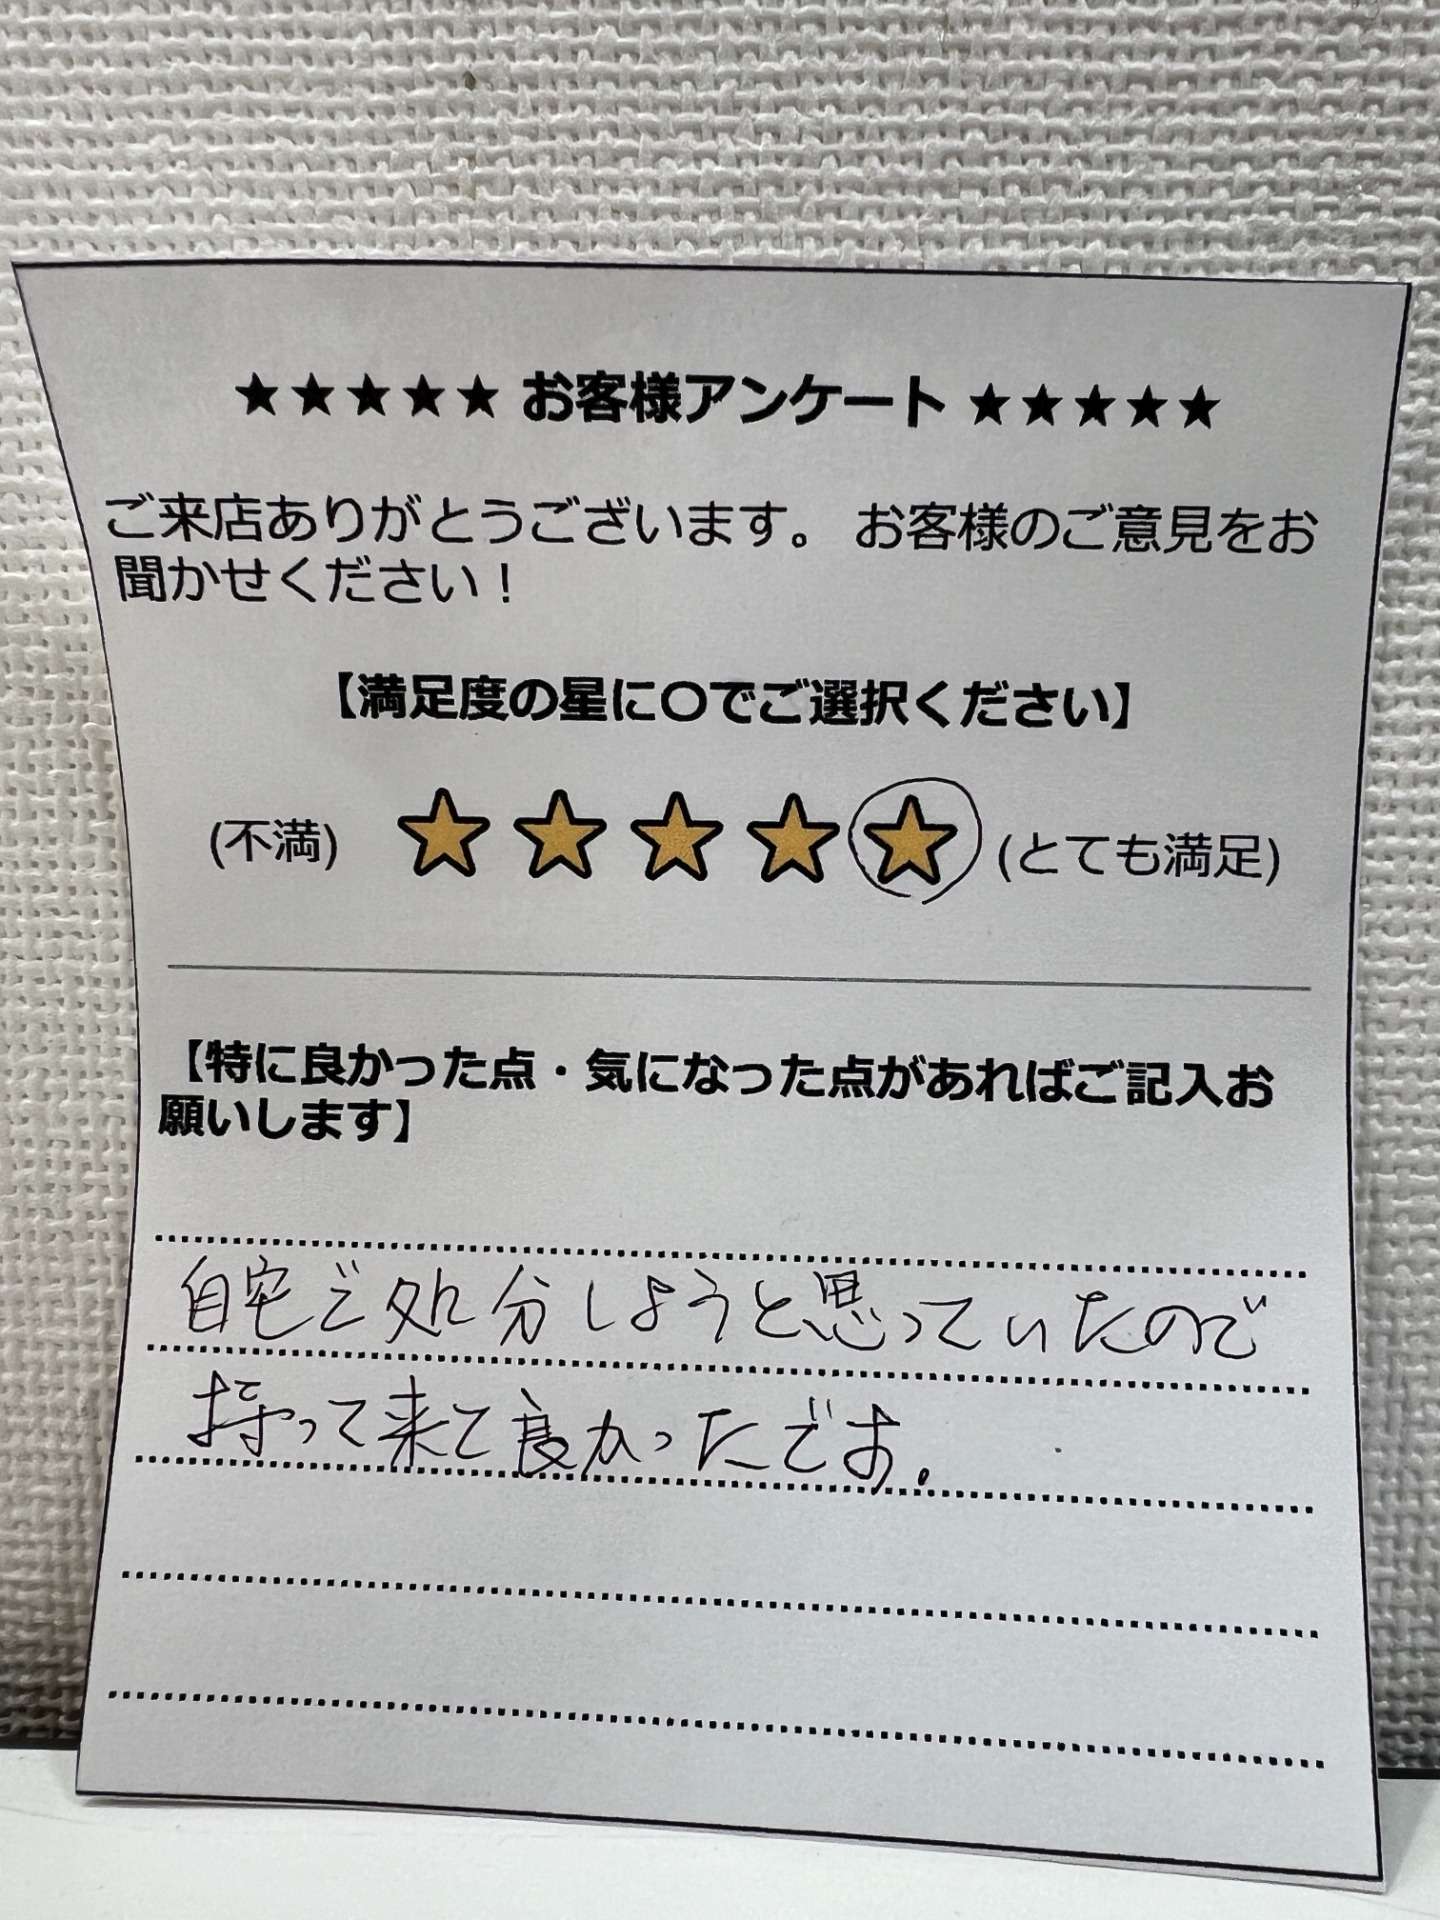 ★★★★★ お客様アンケート ★★★★★
ご来店ありがとうございます。 お客様のご意見をお
聞かせください！
【満足度の星に〇でご選択ください】
(不満) ★ ★ ★ ★ ★ (とても満足)
【特に良かった点・気になった点があればご記入お
願いします】
自宅で処分しようと思っていたので
持って来て良かったです。